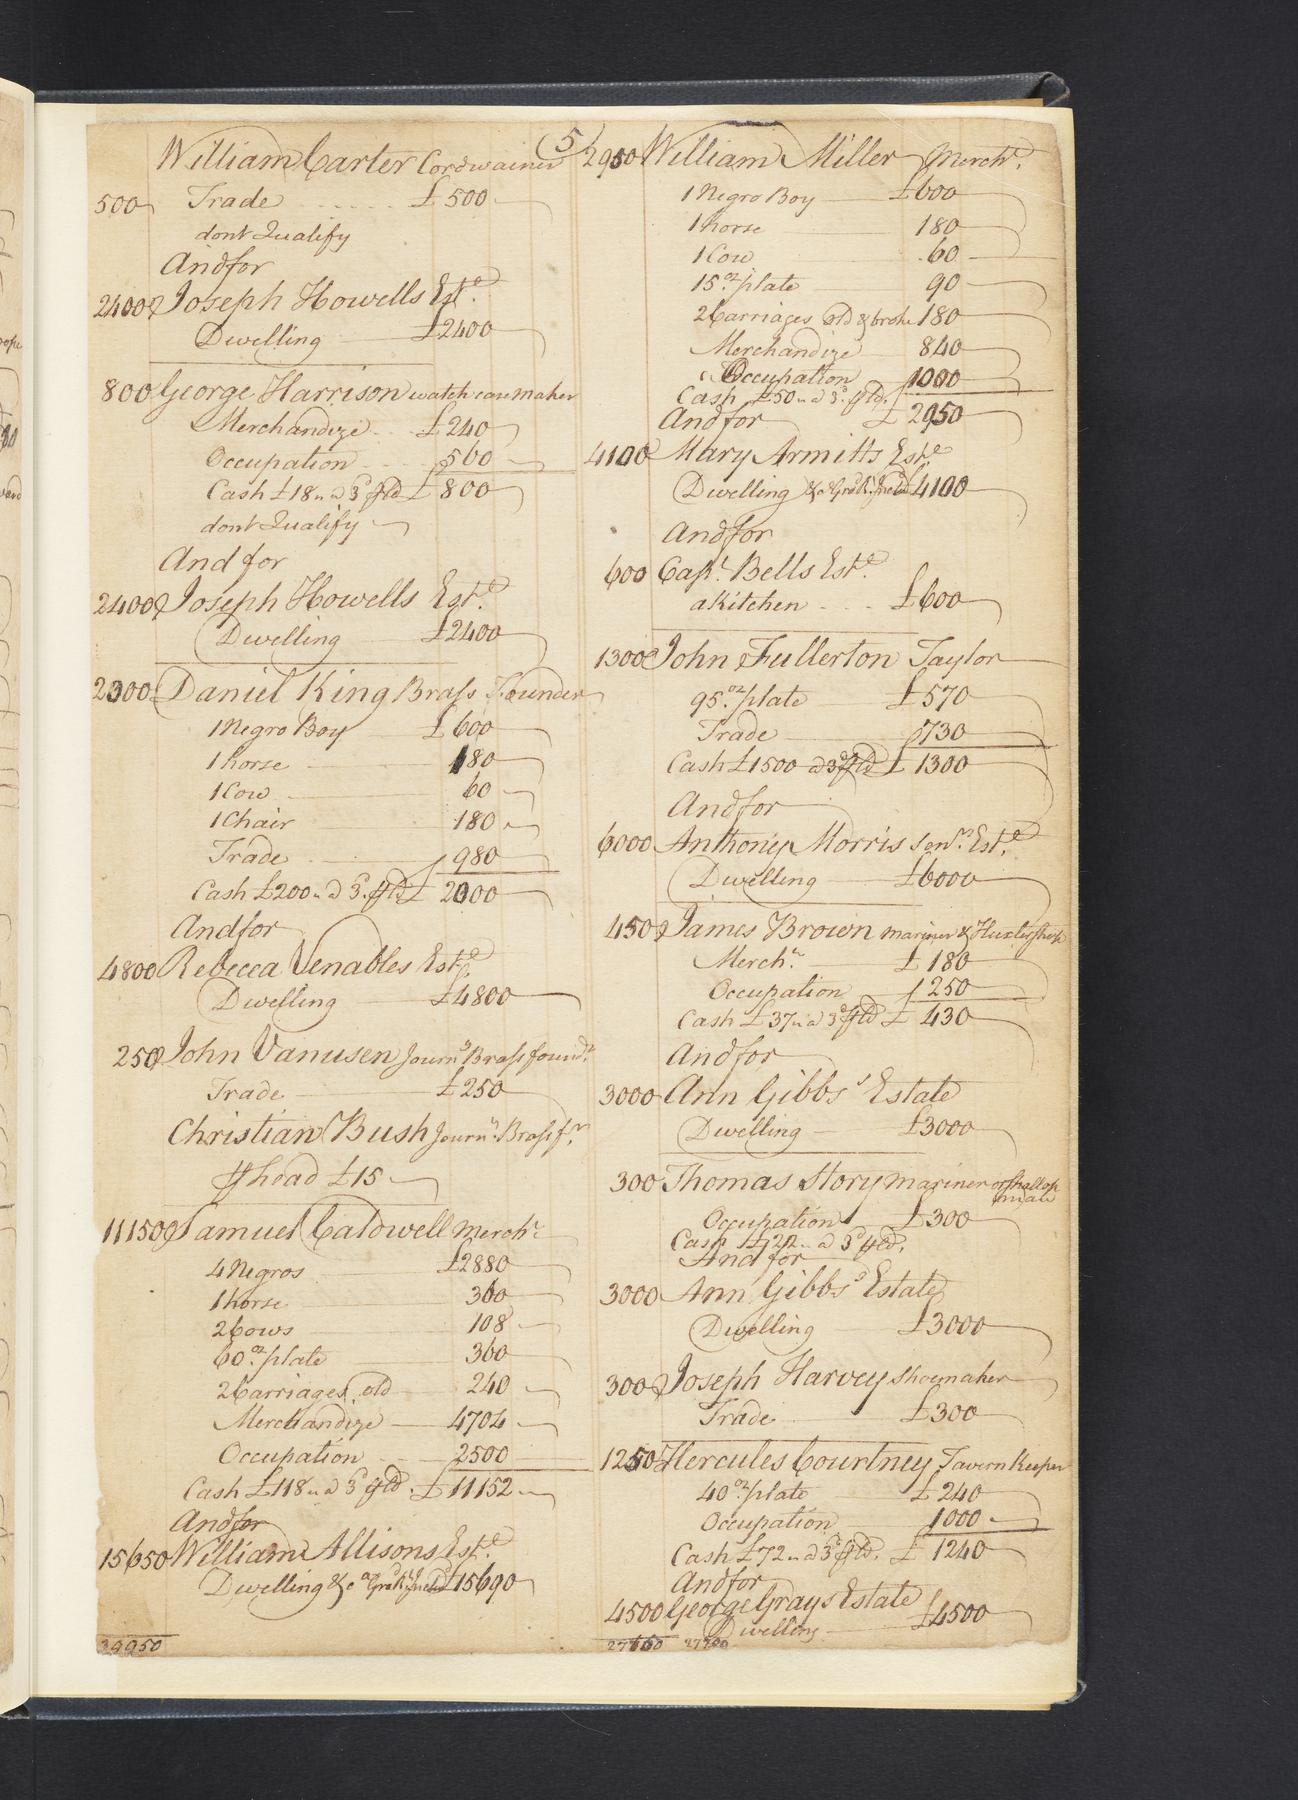 5
William Carter Cordwainer
500 Trade £500
dont Qualify
And for
2400 Joseph Howells Est.e
Dwelling £2400
800 George Harrison watch case maker
Merchandize £240
Occupation 560
Cash £18 £800
dont Qualify
And for
2400 Joseph Howells Est.e
Dwelling £2400
2300 Daniel King Brass Founder
1 Negro Boy £600
1 horse 180
1 Cow 60
1 Chair 180
Trade 980
Cash £200 £2000
And for
4800 Rebecca Venables Est.e
Dwelling £4800
250 John Vanusen Journ.y Brass found.r
Trade £250
Christian Bush Journ.y Brass f.r
⅌ head £15
11150 Samuel Caldwell Merch.t
4 Negros £2880
1 horse 360
2 Cows 108
60 oz plate 360
2 Carriages old 240
Merchandize 4704
Occupation 2500
Cash £118 £11152
And for
15650 William Allisons Est.e
Dwelling &c £15690
39950
2950 William Miller Merch.t
1 Negro Boy £600
1 horse 180
1 Cow 60
15 oz plate 90
2 Carriages old & broke 180
Merchandize 840
Occupation 1000
Cash £50
And for £2950
4100 Mary Armitts Est.e
Dwelling &c £4100
And for
600 Cap.t Bells Est.e
a Kitchen £600
1300 John Fullerton Taylor
95 oz plate £570
Trade 730
Cash £1500 £1300
And for
6000 Anthony Morris Sen.r Est.e
Dwelling £6000
450 James Brown mariner & Huxter shop
Merch.e £180
Occupation 250
Cash £37 £430
And for
3000 Ann Gibbs's Estate
Dwelling £3000
300 Thomas Story mariner or shallop man
Occupation £300
Cash
And for
3000 Ann Gibbs's Estate
Dwelling £3000
300 Joseph Harvey Shoemaker
Trade £300
1250 Hercules Courtney Tavern Keeper
40 oz plate £240
Occupation 1000
Cash £72 £1240
And for
4500 George Grays Estate
Dwelling £4500